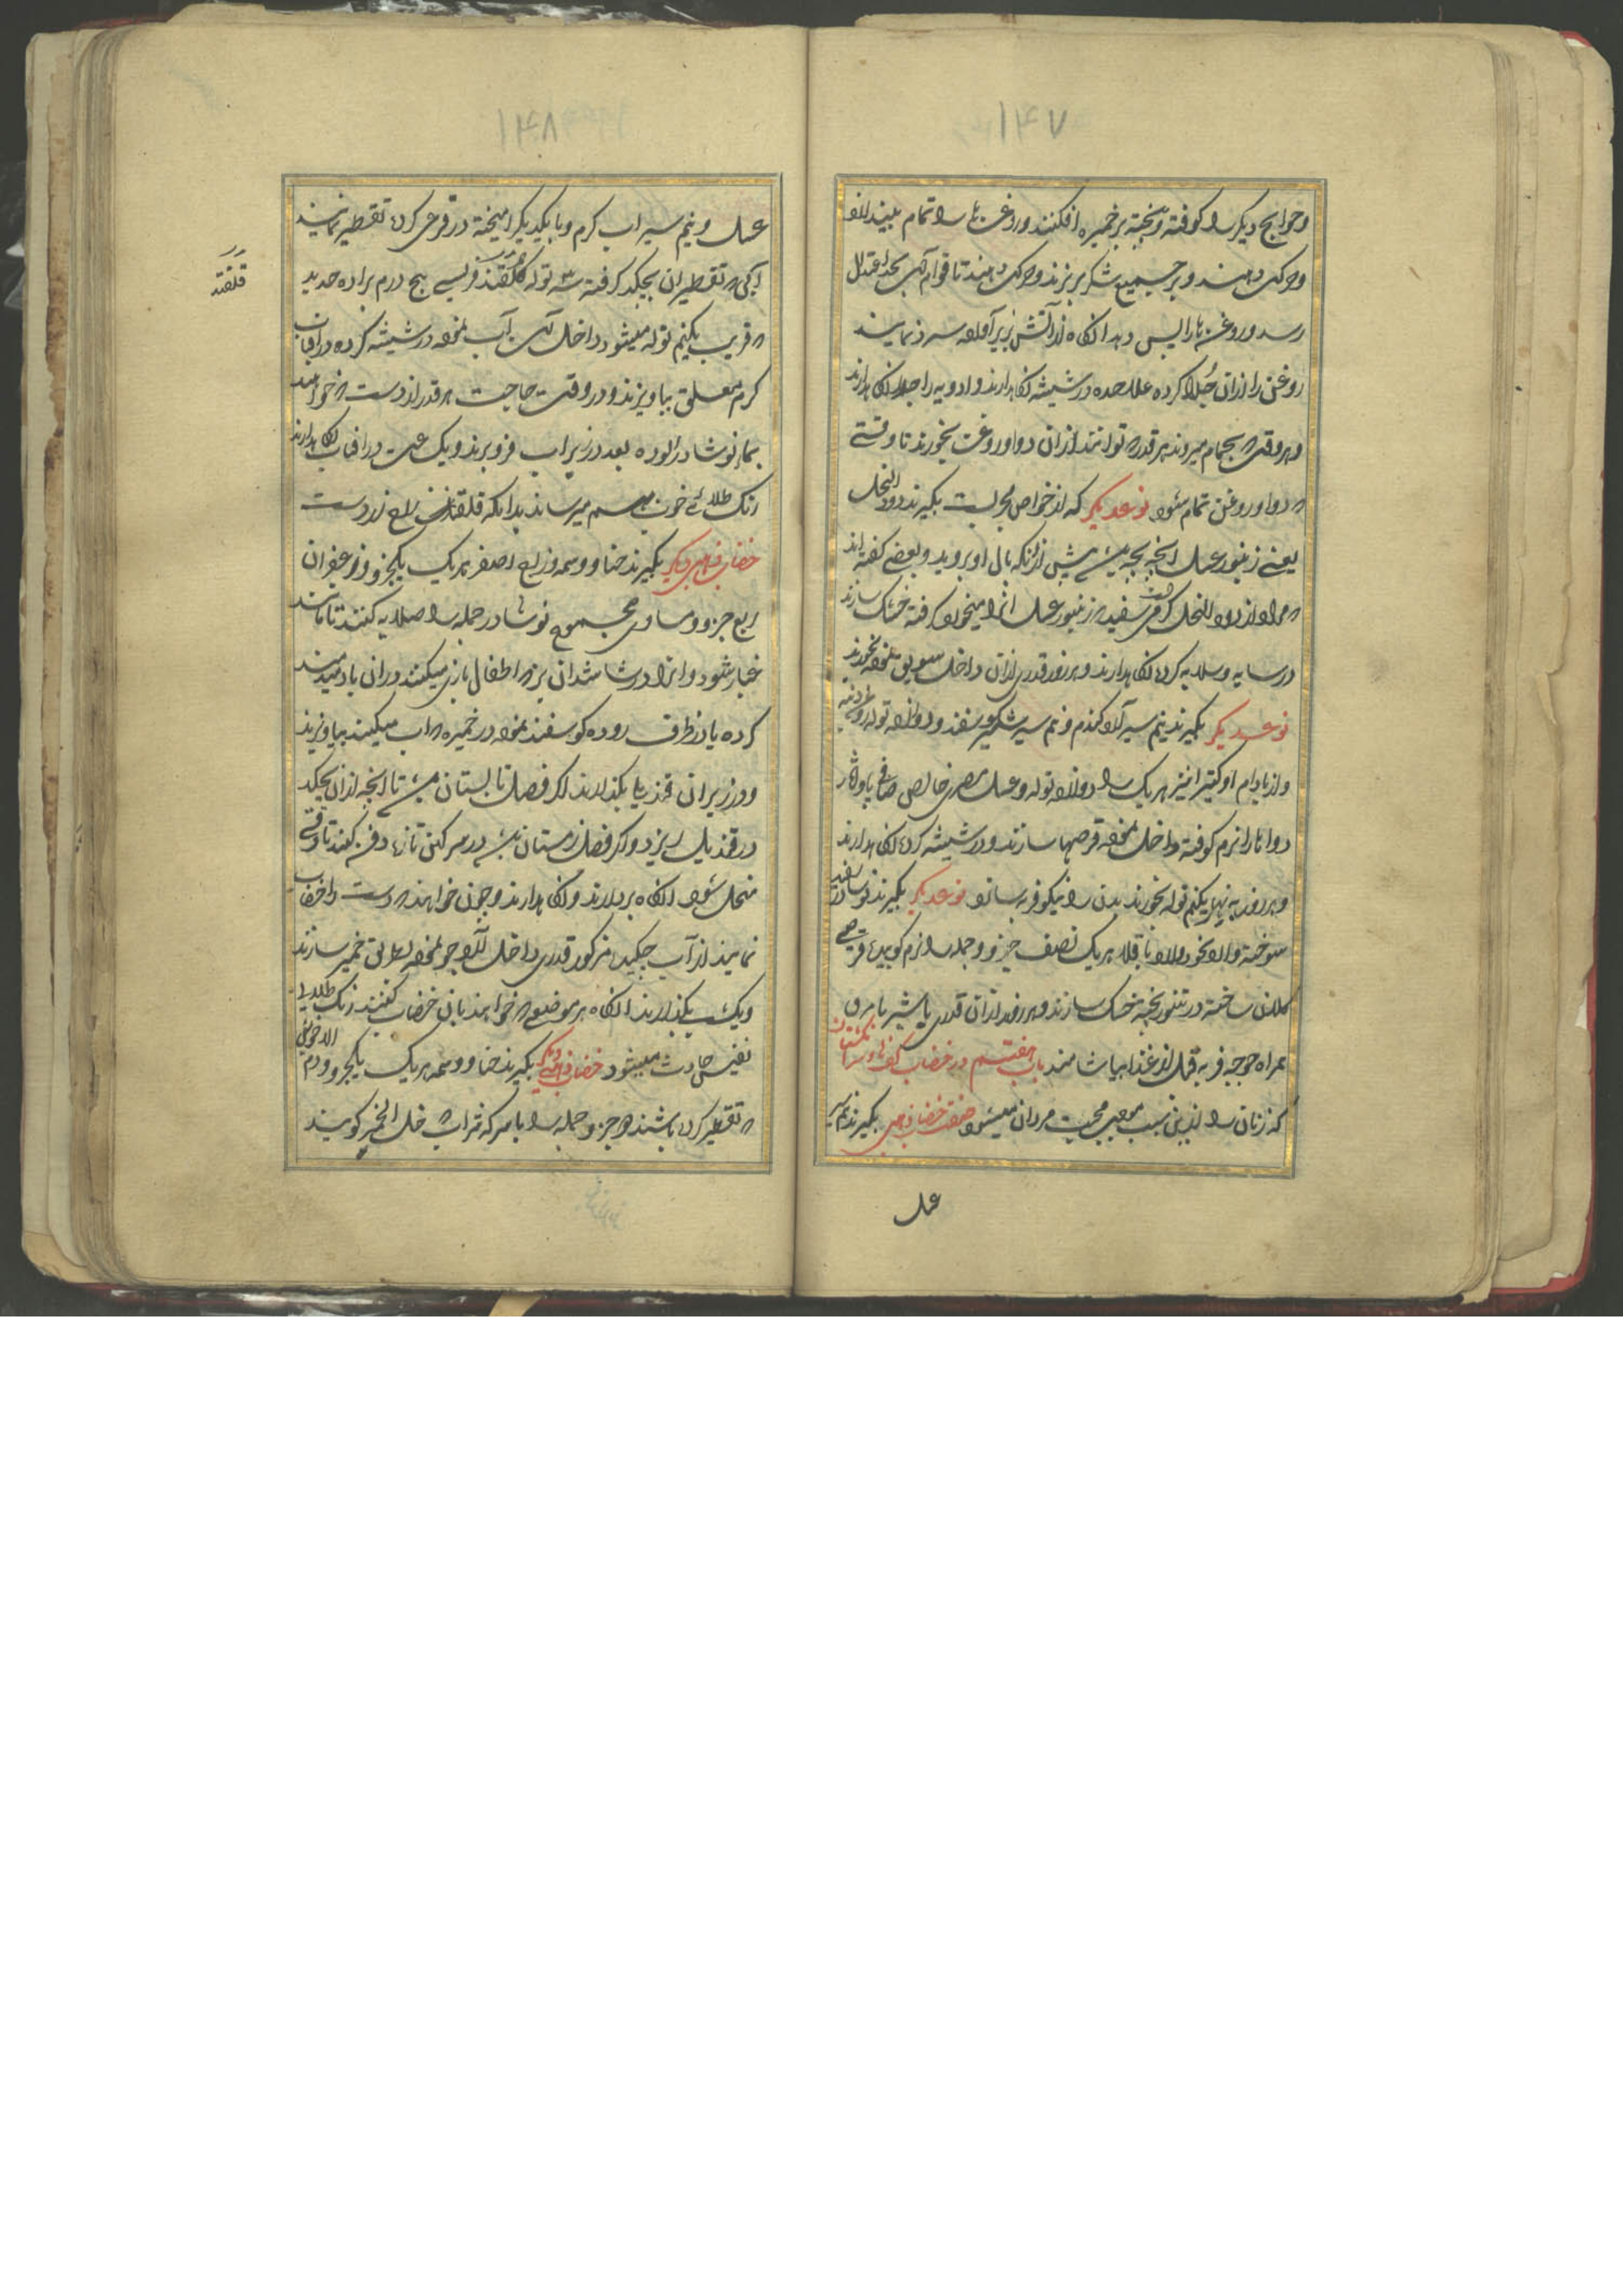 ۱۴۷
وحوایج دیکر را کوفته و پخته بر خمیره افکنند و روغن ها را تمام
وحرکت دهند و بر جمیع شکر بریزند وحرکت دهند تا قوام آن بحد اعتدال
رسد و روغن ها را پس دهد انکاه از آتش بزیر آورده سرد نمایند
روغن را از ان جدا کرده علاحده در شیشه نکاهدارند و ادویه را جدا نکاهدارند
و هر وقت که بحمام میروند هر قدر که توانند از ان دوا و روغن بخورند تا وقتی
که دوا و روغن تمام شود نوعدیکر که از خواص مجربست بکیرند دود النحل
یعنی زنبور عسل انچه بچه پیش از انکه بال او بروید و بعضی کفته اند
که مراد از دود النحل کرمی سفید که زنبور عسل انرا میخورد کرفته خشک سازند
در سایه وسلایه کرده نکاهدارند و هر روز قدری از ان داخل سویق نموده بخورند
نوعدیکر بکیرند نیم سیر آرد کندم و نیم سیر شکر سفید و دوازده توله روغن
و از بادام او کتیرا نیز هر یک را دوازده توله و عسل مصری خالص صافی پاو آثار
دواها را نرم کوفته داخل نموده قرصها سازند و در شیشه کرده نکاهدارند
و هر روز به نهار یکنیم توله بخورند بدن را نیکو فربه سازد نوعدیکر بکیرند نوشادر سفید
سوخته وارد نخود وارد باقلا هر یک نصف جزو و جمله را نرم کوبیده قرصی
کلان ساخته در تنور پخته خشک سازند و هر روز از ان قدری با شیر یا مرق
همراه جوجه فربه قبل از غذا بیاشامند باب هفتم در خضاب کفها و سر انکشتان
که زنان را از ین سبب موجب محبت مردان میشود صفت خضاب ذهبی بکیرند نیم سیر
عسل
۱۴۸
عسل و نیم سیر اب کرم و با یکدیکر امیخته در قرعی کرده تقطیر نمایند
آبی که تقطیر ان بچکد کرفته سه توله قلقند فرنسی پنج درم براده حدید
که قریب یکنیم توله میشود داخل آن آب نموده در شیشه کرده در آفتاب
کرم معلق بیاویزند و در وقت حاجت هر قدر از دست که خواهند
بماء نوشادر الوده بعد در زیر اب فرو برند و یک ساعت در افتاب نکاهدارند
رنک طلائے خوب بهم میرساند بدانکه قلقند زاغ زرد است
خضاب ذهبی دیکر بکیرند حنا و وسمه و زاج اصفر هر یک یکجزو و زعفران
ربع جزو و مساوی مجموع نوشادر جمله را صلایه کنند تا مانند
غبار شود و انرا در شاشدان بز که اطفال بازی میکنند و ران باد میدمند
کرده یا در ظرف روده کوسفند نموده در خمیره که اب میکیند بیاویزند
و در زیر ان قندیلی بکذارند اکر فصل تابستان باشد تا انچه از ان بچکد
در قندیل بریزد و اکر فصل زمستان باشد در سرکین تازه دفن کنند تا وقتی
منحل شود انکاه بردارند و نکاهدارند و چون خواهند که دست را خضاب
نمایند از آب چکیده مذکور قدری داخل آرد جو نموده بطریق خمیر سازند
و یکشب بکذارند انکاه بر موضعی که خواهند بان خضاب کنند رنک طلایی
نفیس حادث میشود خضاب ذهبی دیکر بکیرند حنا و وسمه هر یک یکجزو و دم الاخوین
که تقطیر کرده باشند دو جزو جمله را با سرکه شراب که خل الخمر کویند
قلقند